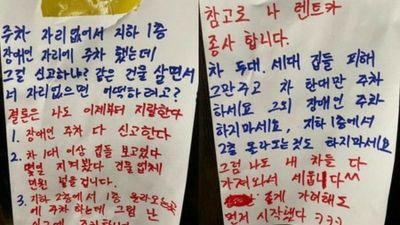 주차 자리없어서 지하 1층
장애인 자리에 주차 했는데
그걸 신고하냐? 같은 건물 살면서
너 자리 없으면 어떻하려고?
결론은 나도 이제부터 지랄한다
1. 장애인 주차 다 신고한다
2. 차 1대 이상 집들 보고있다
몇일 지켜봤다 건물 업체에
민원 넣을겁니다.
3. 지하 2층에서 1층 올라오는곳
에 주차 하는데 그럼 난
참고로 나 렌트카
종사 합니다.
차 두대. 세대 집들 피해
그만주고 차 한대만 주차
하세요 그외 장애인 주차
하지마세요, 지하 1층에서
2층 올라오는것도 하지마세요
그럼 나도 내 차들 다
가져와서 세웁니다^^
좋게 가려해도
먼저 시작했다 ㅋㅋㅋ